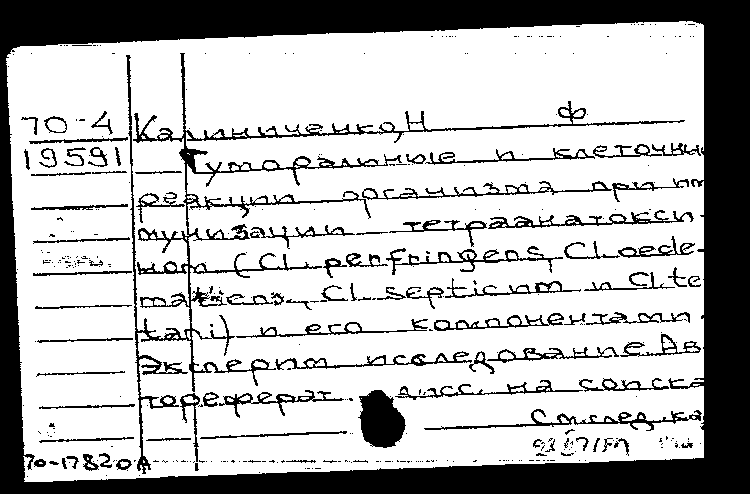 70-4 Калиниченко, Н Ф
19591 Гуморальные и клеточны
реакции организма при им
мунизации тетраанатокси-
ном (Cl. perfringens, Cl. oede-
matiens, Cl. septicum и Cl. te
tani) и его компонентами.
Эксперим исследование. Ав
тореферат. дисс. на соиска
См. след. ка
70-17820А